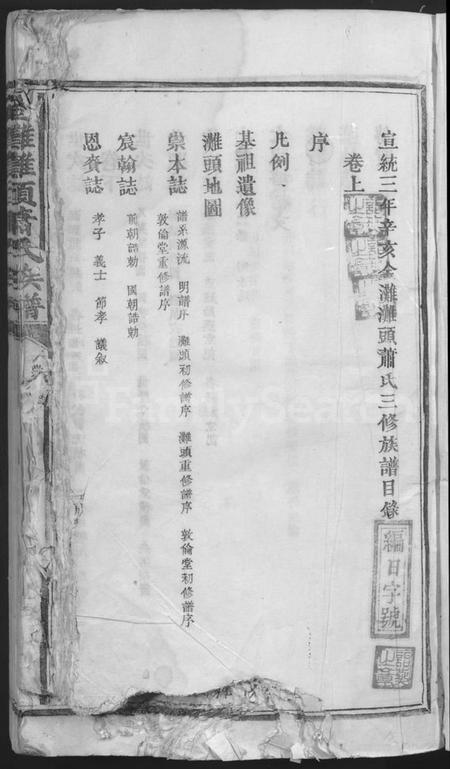 宣統三年辛亥金灘灘頭蕭氏三修族譜目錄
編日字號
卷上
序
凡例
基祖遺像
灘頭地圖
崇本誌
譜系源流 明譜序 灘頭初修譜序 灘頭重修譜序 敦倫堂初修譜序
敦倫堂重修譜序
宸翰誌
前朝誥勅 國朝誥勅
恩賚誌
孝子 義士 節孝 議敘
灘灘頭蕭氏族譜
FamilySearch